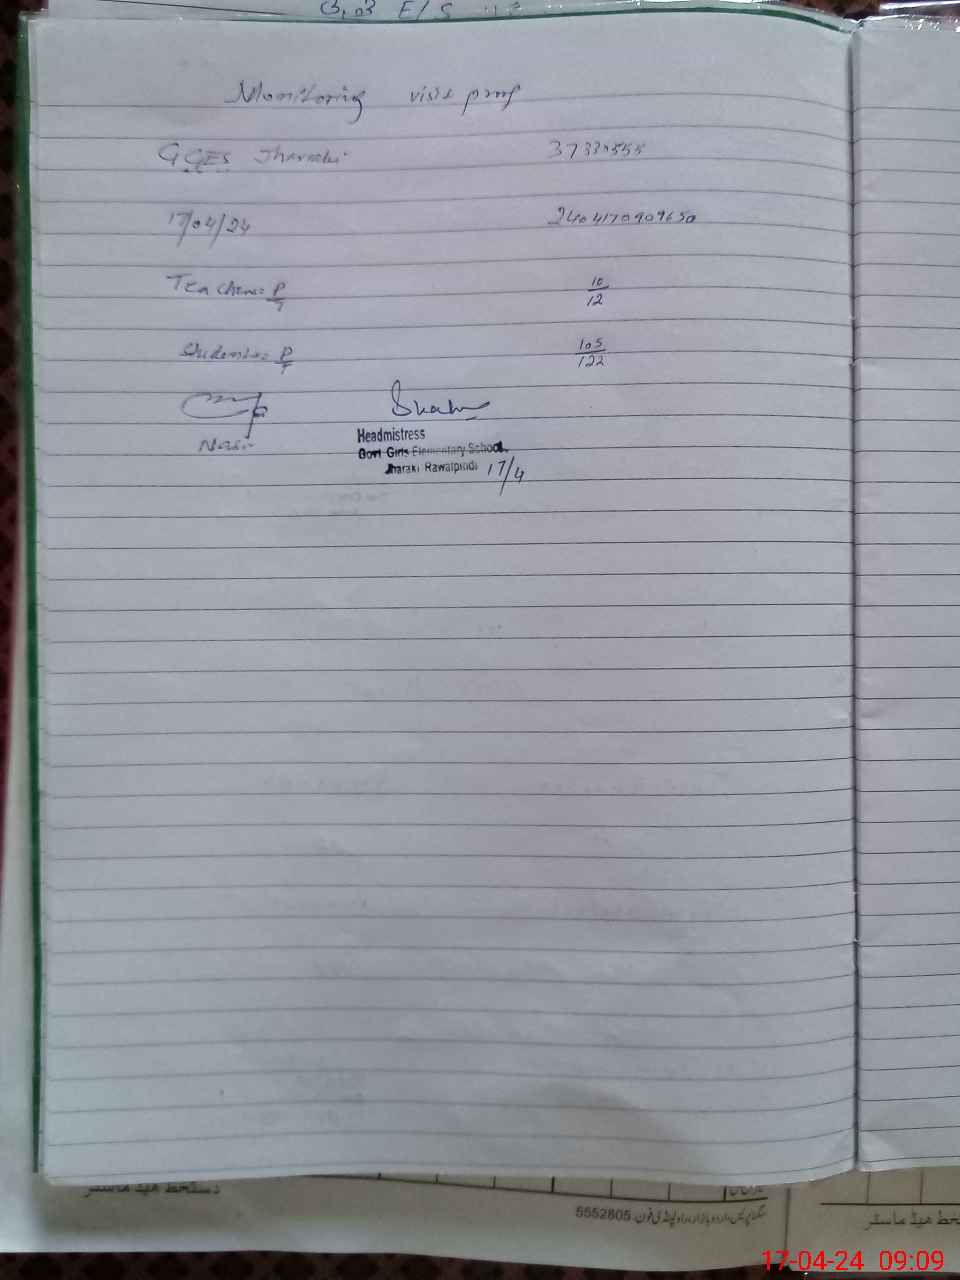 Monitoring visit proof
GGES Jharaki 37330555
17/04/24 2404170909650
Teachers P/T 10/12
Students P/T 105/122
Nasir
Headmistress
Govt Girls Elementary School.
Jharaki Rawalpindi 17/4
دستخط ہیڈ ماسٹر
5552805
17-04-24 09:09